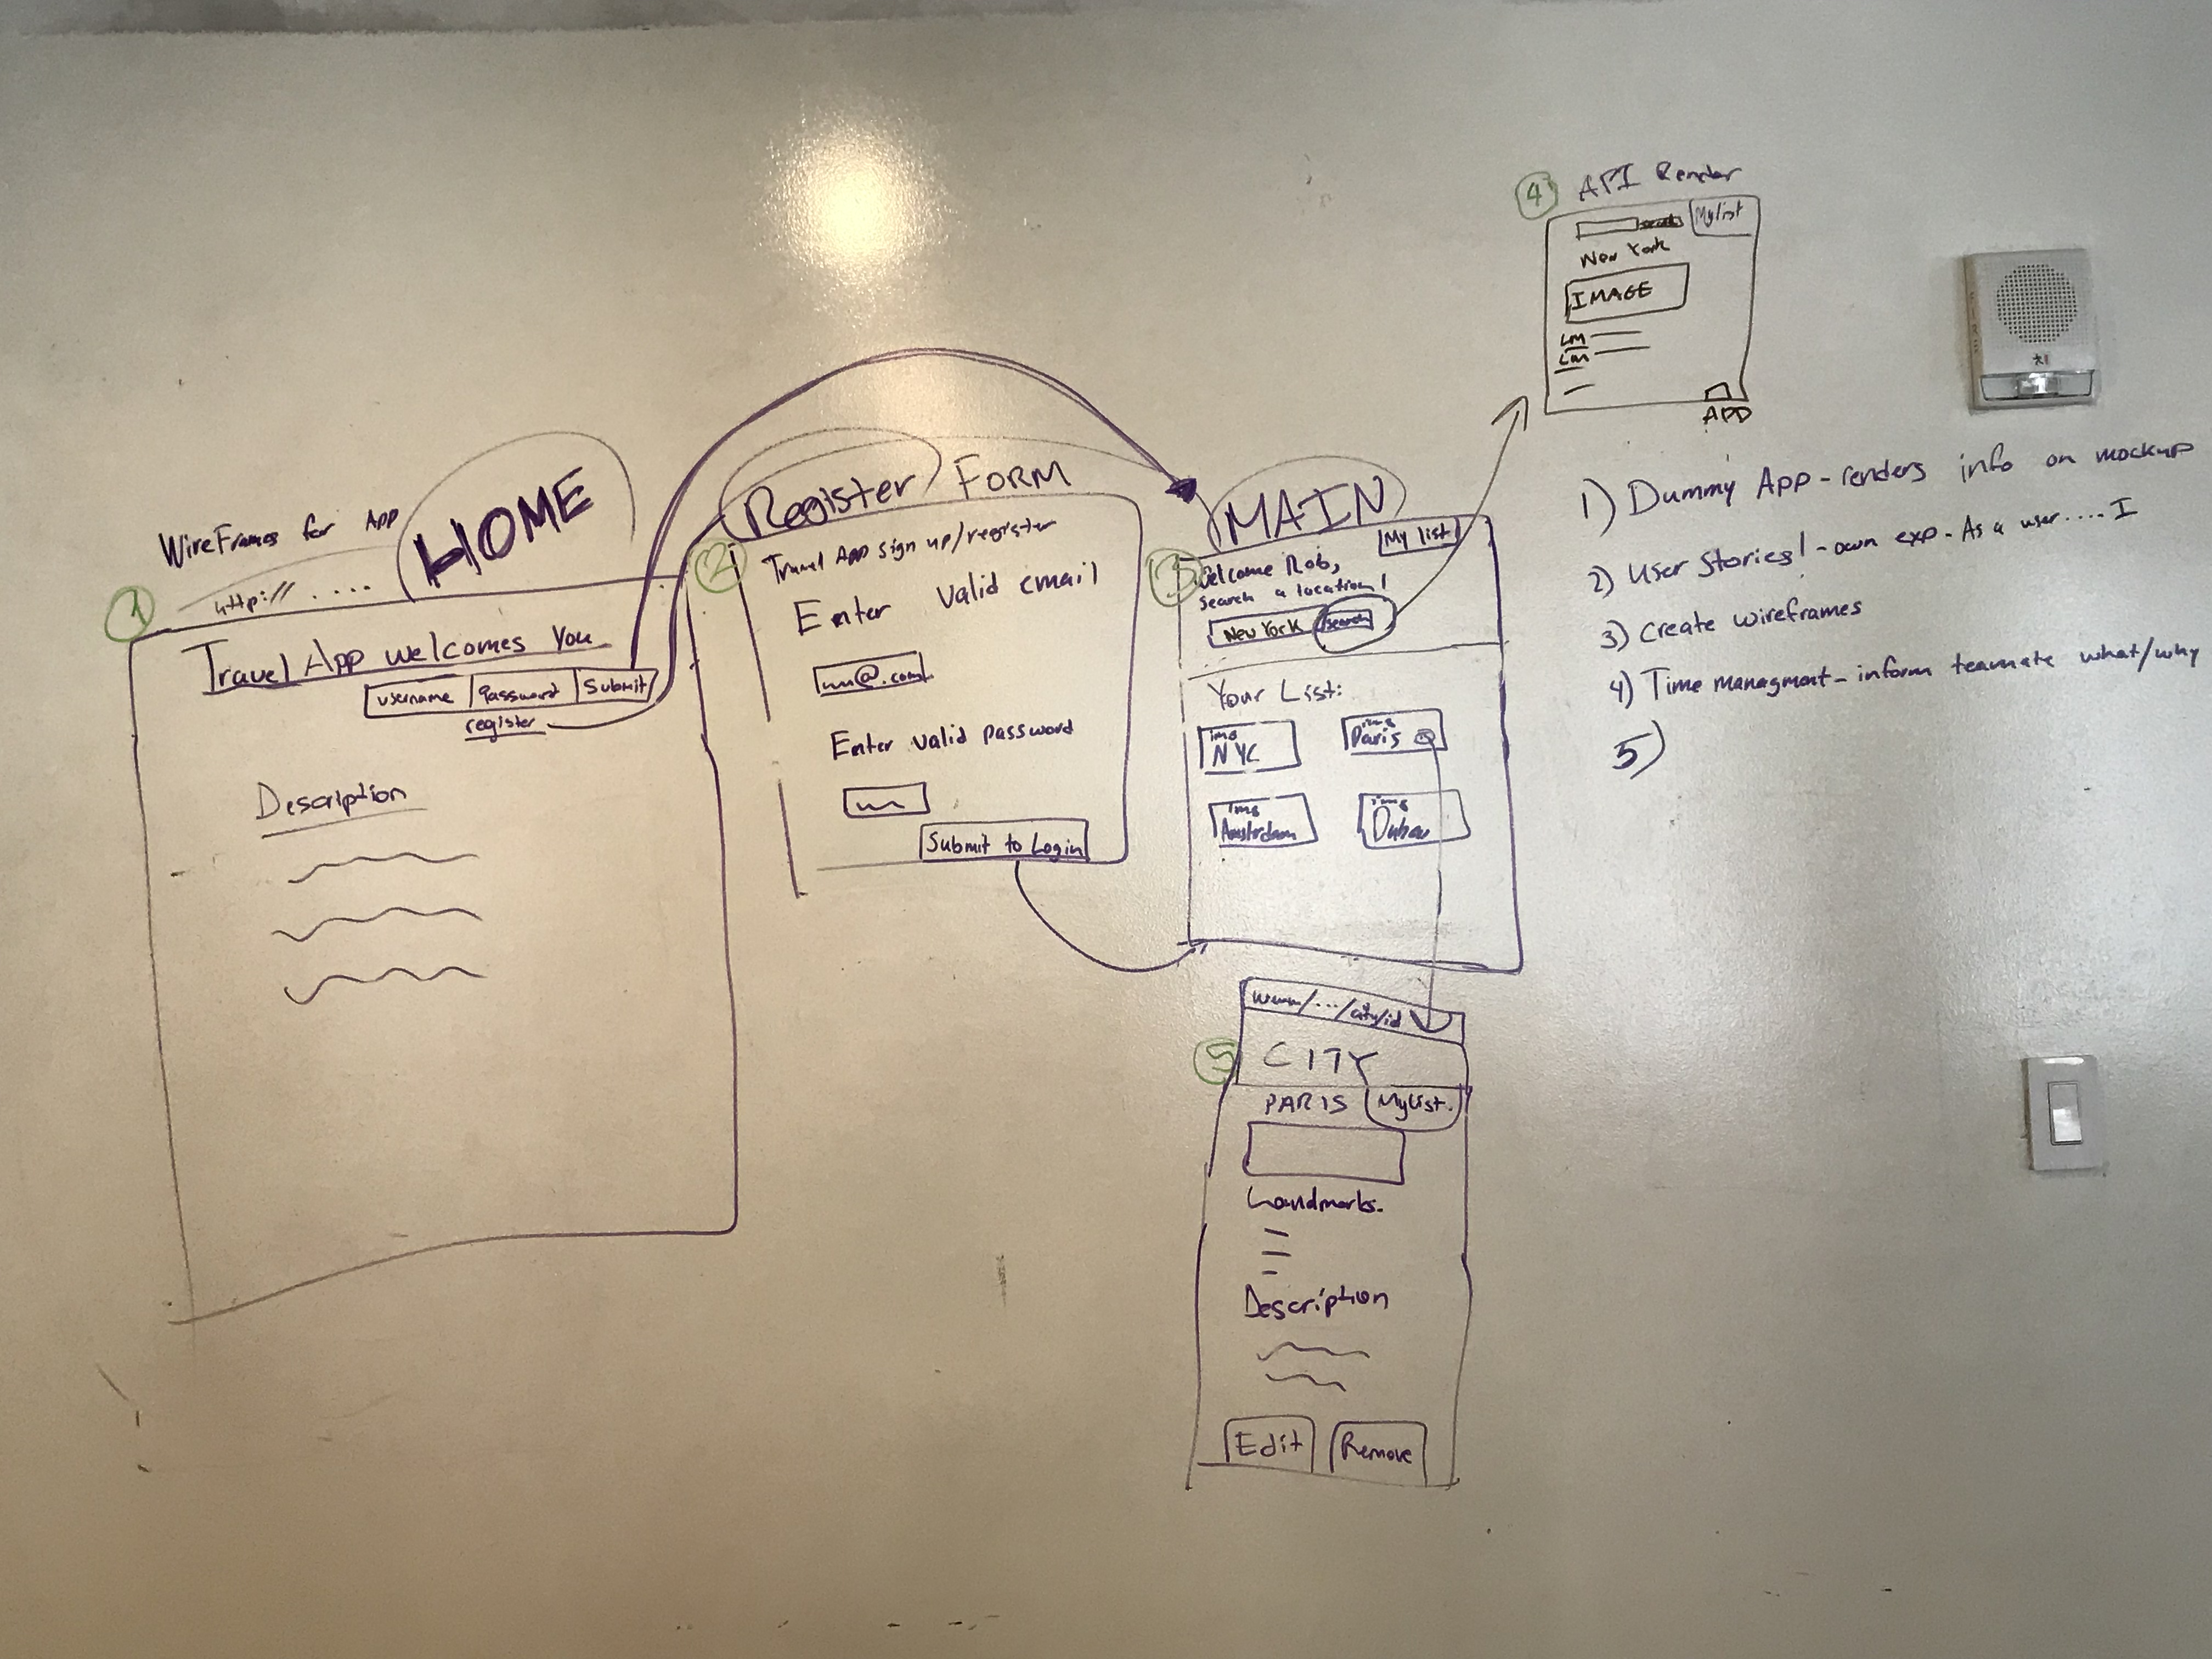 WireFrames for App
HOME
1
http:// . . . .
Travel App welcomes You
username
Password
Submit
register
Description
Register FORM
2
Travel App sign up/register
Enter valid email
@.com
Enter valid password
Submit to Login
MAIN
3
My list
Welcome Rob,
search a location!
New York
search
Your List:
img
NYC
img
Paris
img
Amstrdam
img
4
API Render
search
My list
New York
IMAGE
LM
LM
APP
5
/.../city/id
CITY
PARIS
Mylist.
Landmarks.
Description
Edit
Remove
1) Dummy App - renders info on mockup
2) User Stories! - own exp - As a user .... I
3) Create wireframes
4) Time managment - inform teamate what/why
5)